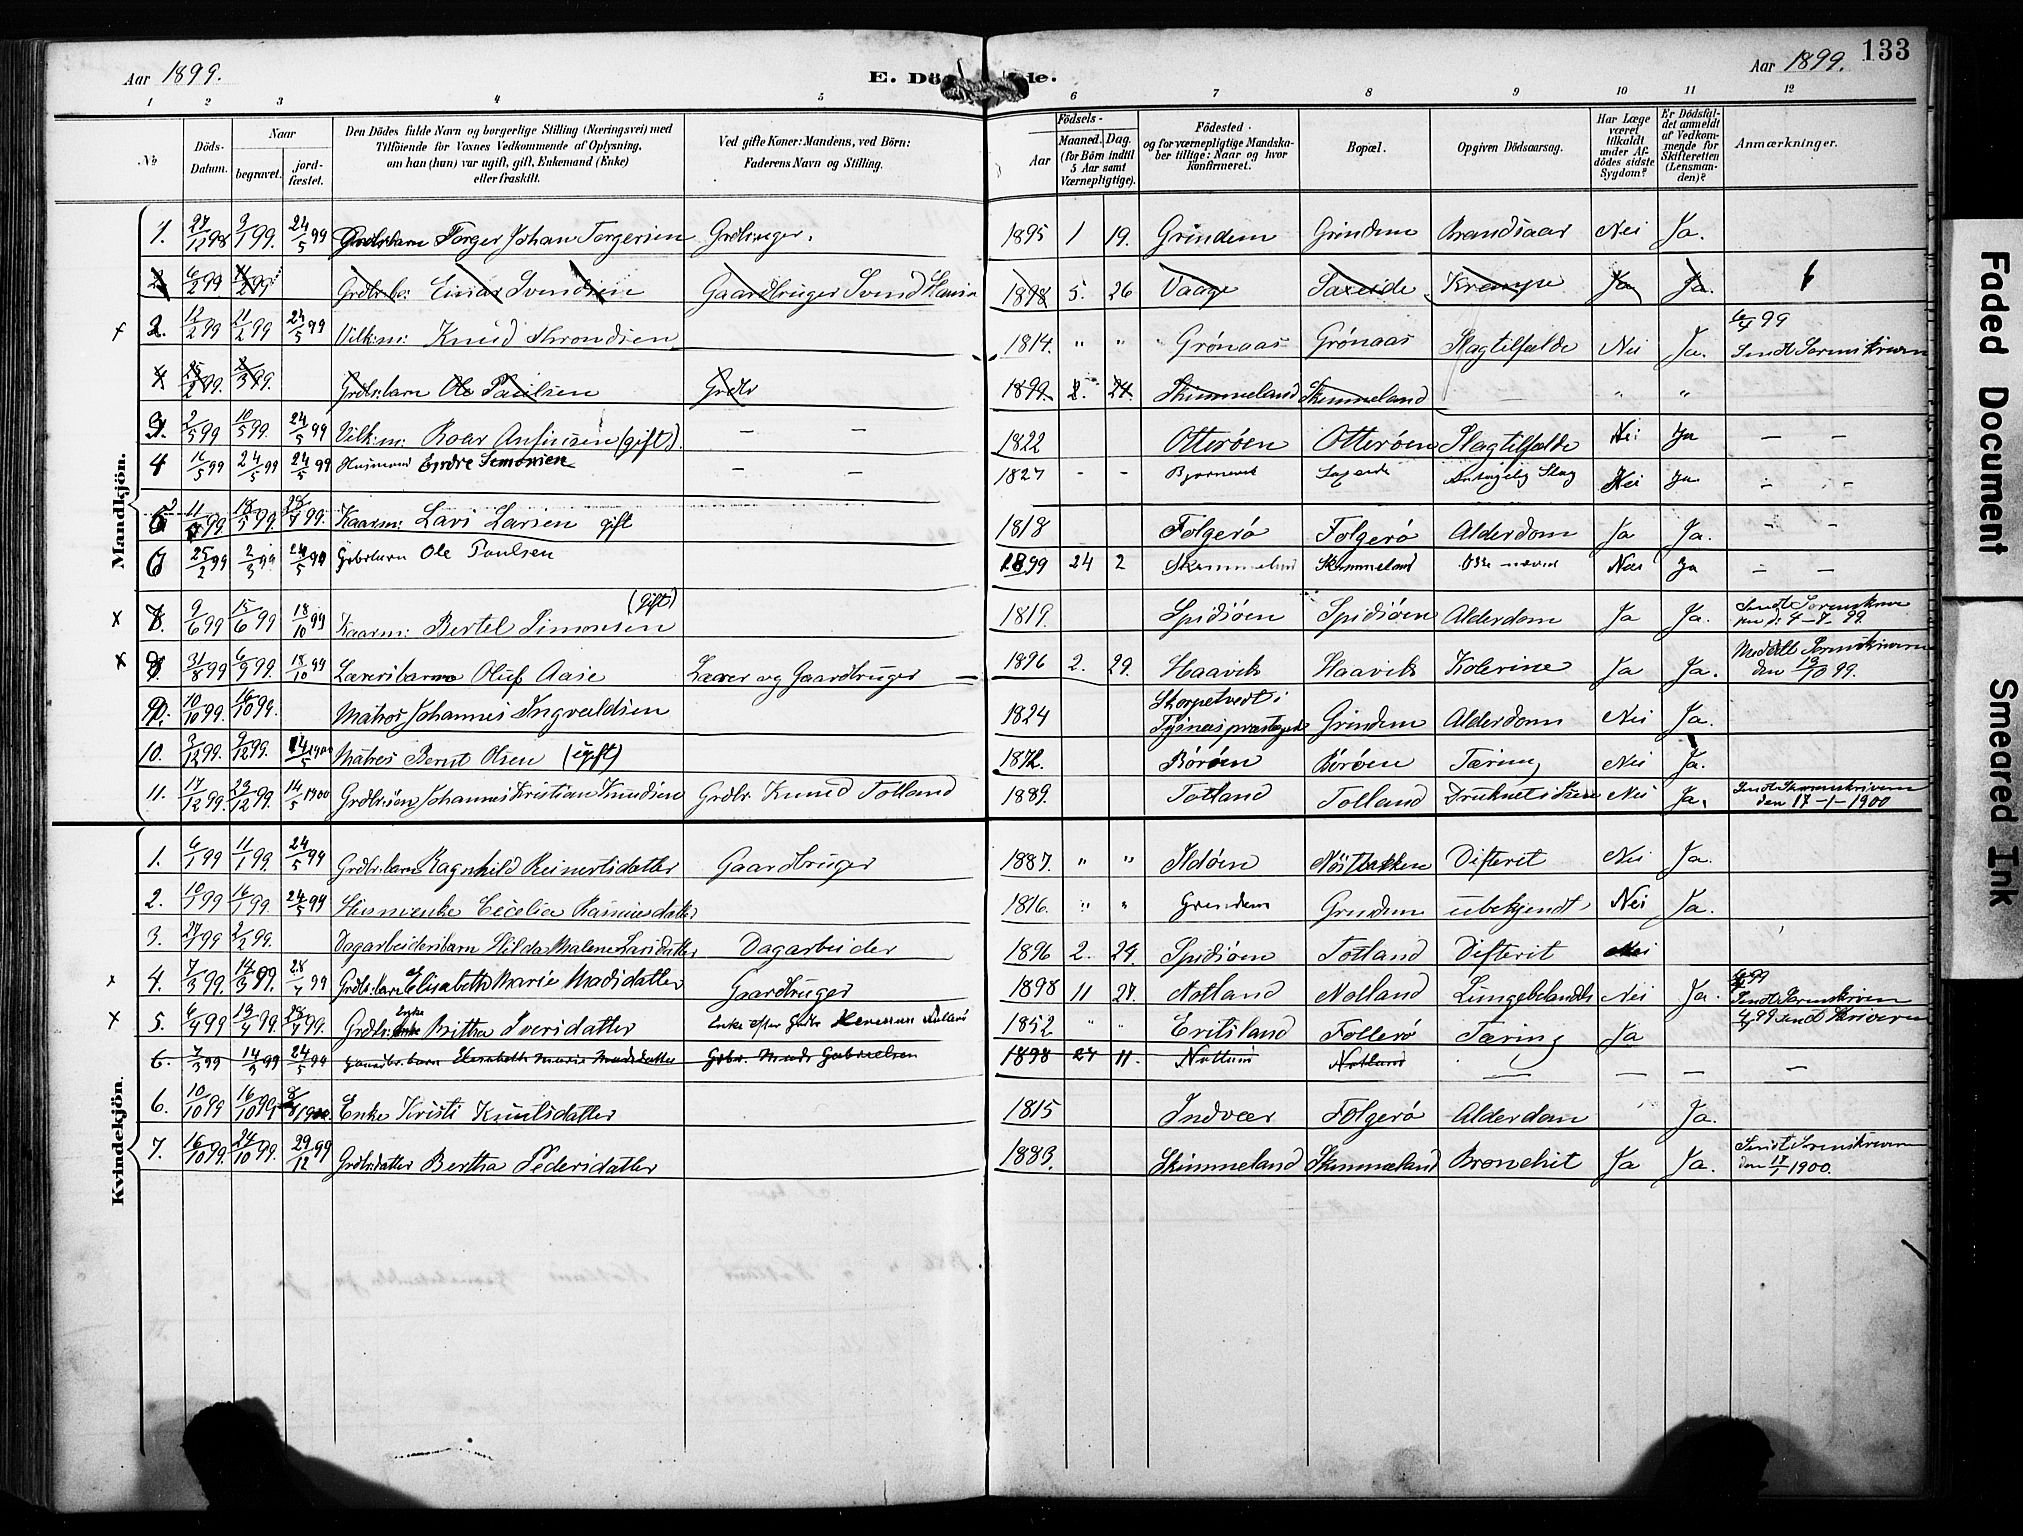 Aar 1899.
E. Dö de.
Aar 1899.
133
1 2 3 4 5 6 7 8 9 10 11 12
№
Döds-Datum.
Naar
begravet.
jord-fæstet.
Den Dödes fulde Navn og borgerlige Stilling (Næringsvei) med
Tilföiende for Voxnes Vedkommende af Oplysning,
om han (hun) var ugift, gift, Enkemand (Enke)
eller fraskilt.
Ved gifte Koner: Mandens, ved Börn:
Faderens Navn og Stilling.
Födsels-
Aar
Maaned. Dag.
(for Börn indtil
5 Aar samt
Værnepligtige).
Födested
og for værnepligtige Mandska-
ber tillige: Naar og hvor
konfirmeret.
Bopæl.
Opgiven Dödsaarsag.
Har Læge
været
tilkaldt
under Af-
dödes sidste
Sygdom?
Er Dödsfal-
det anmeldt
af Vedkom-
mende for
Skifteretten
(Lensman-
den)?
Anmærkninger.
Mandkjön.
1. 27/12 98 9/1 99. 24/5 99 Grdbr.barn Torger Johan Torgersen Grdbruger. 1895 1 19. Grindem Grindem Brandsaar Nei Ja.
2 6/2 99 Grdbr.br: Einar Svendsen Gaardbruger Svend 1898 5. 26 Vaage Saxeide Krampe Ja Ja.
2. 12/2 99 21/2 99 24/5 99 Vilk:m: Knud Throndsen 1814. " " Grønaas Grønaas Slagtilfælde Nei Ja. 6/4 99
Sendt Sorenskriveren
4 25/2 99. 2/3 99. Grdbr.barn Ole Paulsen Grdbr 1899. 2. 24. Skimmeland Skimmeland — " "
3. 2/5 99 10/5 99. 24/5 99 Vilk:m: Roar Anfinsen (gift). — — 1822 Otterøen Otterøen Slagtilfælde Nei Ja — —
4 16/5 99 24/5 99 24/5 99 Husmand Endre Simonsen — — 1827 - - Saxeide Antagelig Slag Nei Ja - -
5 11/5 99 18/5 99. 28/7 99. Kaarm: Lars Larsen gift 1818 Folgerø Folgerø Alderdom Ja Ja. - -
6 25/2 99 2/3 99 24/5 99 Grbr.barn Ole Paulsen 1899 24 2 Skimmeland Skimmeland Nei Ja — —
7. 9/6 99 15/6 99 18/10 99 Kaarm: Bertel Simonsen (gift) 1819. Spidsøen Spidsøen Alderdom Ja Ja. Sendt Sorenskrive
ren d: 4-7-99.
8. 31/8 99 6/9 99. 18/10 99 Lærersbarn Oluf Aase Lærer og Gaardbruger 1896 2. 29. Haavik Haavik Kolerine Ja Ja. Meddelt Sorenskriveren
den 13/10 99.
9. 10/10 99. 16/10 99. Matros Johannes Ingvaldsen 1824 Skorpetvedt i
Tysnes præstegjeld Grindem Alderdom Nei Ja.
10. 3/12 99. 9/12 99. 14/5 1900 Matros Bernt Olsen (ugift) 1872. Børøen Børøen Tæring Nei Ja.
11. 17/12 99. 23/12 99. 14/5 1900 Grdbr.søn Johannes Kristian Knudsen Grdbr. Knud Totland 1889. Totland Totland Druknet i Nei Ja. Sendt Sorenskriveren
den 17-1-1900
Kvindekjön.
1. 6/1 99 11/1 99. 24/5 99 Grdbr.barn Ragnhild Reinertsdatter Gaardbruger 1887. " " Ildøen Nøstbakken Difterit Nei Ja.
2. 10/1 99 16/1 99. 24/5 99 Husmenke Cecelia Rasmusdatter 1816. " " Grindem Grindem ubekjendt Nei Ja.
3. 27/1 99 2/2 99. Dagarbeidersbarn Hilda Malene Larsdatter Dagarbeider 1896 2. 24. Spidsøen Totland Difterit Nei
4. 7/3 99. 14/3 99. 28/7 99 Grdbr.barn Elisabeth Marie Madsdatter Gaardbruger 1898 11 27. Notland Notland Lungebetændelse Nei Ja. 6/4 99
Sendt Sorenskriveren
5. 6/4 99 13/4 99. 28/7 99. Grdbr. Enke Britha Iversdatter Enke efter Grdbr 1852 " " Eritsland Follerø Tæring Ja 4/7 99 sendt Skriveren
6. 7/3 99 14/3 99 24/5 99 Gaardbr. barn Elisabeth Marie Madsdatter Grbr. Mads Gabrielsen 1898 27 11. Notland Notland — — — —
6. 10/10 99 16/10 99 Enke Kristi Knutsdatter 1815 Indvær Folgerø Alderdom Ja.
7. 16/10 99. 24/10 99. 29/12 99 Grdbr.datter Bertha Pedersdatter 1883. Skimmeland Skimmeland Bronchit Ja Ja. Sendt Sorenskriveren
den 17/1 1900.
Faded Document
Smeared Ink